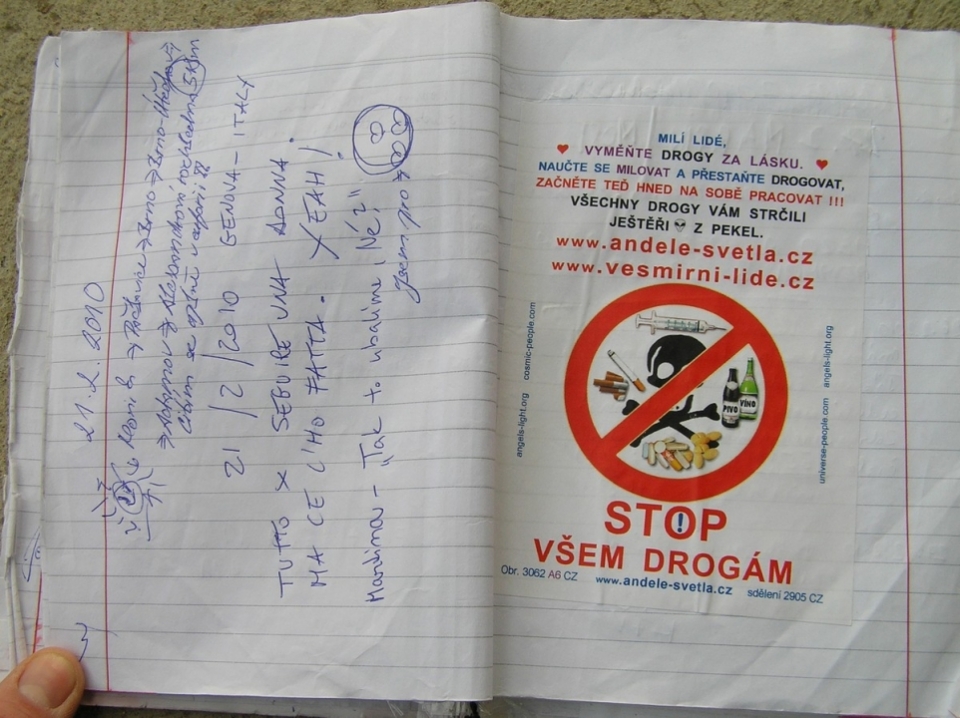 21. 2. 2010
Adamov
21/2/2010 GENOVA - ITALY
TUTTO X SEGUIRE UNA DONNA.
MA CE L'HO FATTA. YEAH!
Martina - "Tak to ubalíme, Né?"
Jsem pro →
MILÍ LIDÉ,
♥ VYMĚŇTE DROGY ZA LÁSKU. ♥
NAUČTE SE MILOVAT A PŘESTAŇTE DROGOVAT,
ZAČNĚTE TEĎ HNED NA SOBĚ PRACOVAT !!!
VŠECHNY DROGY VÁM STRČILI
JEŠTĚŘI Z PEKEL.
www.andele-svetla.cz
www.vesmirni-lide.cz
angels-light.org cosmic-people.com
PIVO
VÍNO
universe-people.com angels-light.org
STOP
VŠEM DROGÁM
Obr. 3062 A6 CZ www.andele-svetla.cz sdělení 2905 CZ